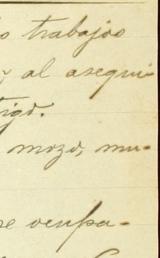 o trabajos
y al asegui-
tigo.
mozo, mu-
se ocupa-